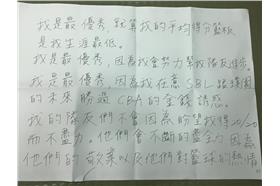 我是最優秀，就算我的平均得分籃板
是我生涯最低。
我是最優秀，因為我會努力幫我隊友進步。
我是最優秀，因為我在意SBL跟璞園
的未來勝過CBA的金錢誘惑。
我的隊友們不會因為盼望我得30/50
而不盡力。他們會不斷的 因為
他們的敬業以及他們對籃球的熱情